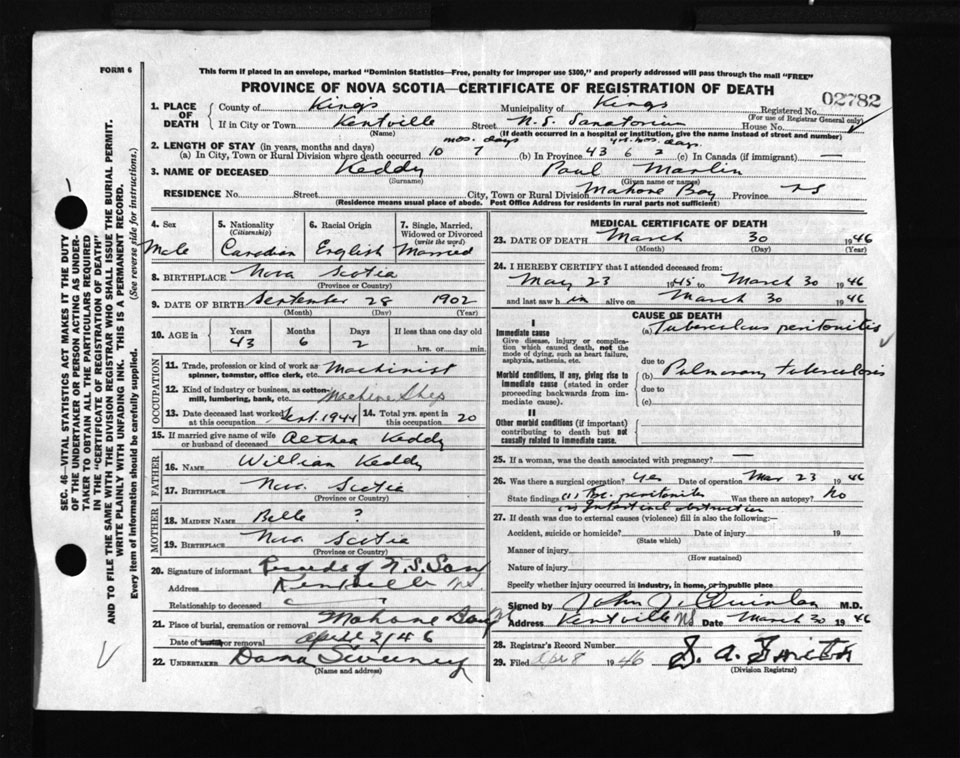 FORM 6
This form if placed in an envelope, marked "Dominion Statistics—Free, penalty for improper use $300," and properly addressed will pass through the mail "FREE"
PROVINCE OF NOVA SCOTIA—CERTIFICATE OF REGISTRATION OF DEATH
02782
1. PLACE OF DEATH { County of Kings Municipality of Kings Registered No.
(For use of Registrar General only)
If in City or Town Kentville Street N.S. Sanatorium House No.
(Name) (If death occurred in a hospital or institution, give the name instead of street and number)
2. LENGTH OF STAY (in years, months and days) mos. days yrs. mos. days.
(a) In City, Town or Rural Division where death occurred 10 7 (b) In Province 43 6 2 (c) In Canada (if immigrant) —
3. NAME OF DECEASED Keddy Paul Marlin
(Surname) (Given name or names)
RESIDENCE No. Street City, Town or Rural Division Mahone Bay Province NS
(Residence means usual place of abode. Post Office Address for residents in rural parts not sufficient)
4. Sex 5. Nationality (Citizenship) 6. Racial Origin 7. Single, Married, Widowed or Divorced (write the word)
Male Canadian English Married
8. BIRTHPLACE Nova Scotia
(Province or Country)
9. DATE OF BIRTH September 28 1902
(Month) (Day) (Year)
10. AGE in Years Months Days If less than one day old
43 6 2 hrs. or min.
OCCUPATION
11. Trade, profession or kind of work as spinner, teamster, office clerk, etc. Machinist
12. Kind of industry or business, as cotton-mill, lumbering, bank, etc. Machine Shop
13. Date deceased last worked at this occupation Sept. 1944 14. Total yrs. spent in this occupation 20
15. If married give name of wife or husband of deceased Aethea Keddy
FATHER
16. NAME William Keddy
17. BIRTHPLACE Nova Scotia
(Province or Country)
MOTHER
18. MAIDEN NAME Belle ?
19. BIRTHPLACE Nova Scotia
(Province or Country)
20. Signature of informant Records of N.S. San
Address Kentville NS.
Relationship to deceased
21. Place of burial, cremation or removal Mahone Bay
Date of burial or removal April 2/46
22. UNDERTAKER Dana Sweeney
(Name and address)
MEDICAL CERTIFICATE OF DEATH
23. DATE OF DEATH March 30 1946
(Month) (Day) (Year)
24. I HEREBY CERTIFY that I attended deceased from:
May 23 1945 to March 30 1946
and last saw h im alive on March 30 1946
CAUSE OF DEATH
I
Immediate cause (a) Tuberculous peritonitis
Give disease, injury or complication which caused death, not the mode of dying, such as heart failure, asphyxia, asthenia, etc.
due to
Morbid conditions, if any, giving rise to immediate cause (stated in order proceeding backwards from immediate cause). (b) Pulmonary tuberculosis
due to
(c)
II
Other morbid conditions (if important) contributing to death but not causally related to immediate cause.
25. If a woman, was the death associated with pregnancy? —
26. Was there a surgical operation? Yes Date of operation Mar 23 1946
State findings (1) Tbc. peritonitis Was there an autopsy? No
(2) Intestinal obstruction
27. If death was due to external causes (violence) fill in also the following:—
Accident, suicide or homicide? Date of injury 19
(State which)
Manner of injury
(How sustained)
Nature of injury
Specify whether injury occurred in industry, in home, or in public place
Signed by John J. Quinlan M.D.
Address Kentville NS Date March 30 1946
28. Registrar's Record Number
29. Filed Apr 8 1946
(Division Registrar)
SEC. 46—VITAL STATISTICS ACT MAKES IT THE DUTY
OF THE UNDERTAKER OR PERSON ACTING AS UNDER-
TAKER TO OBTAIN ALL THE PARTICULARS REQUIRED
IN THE "CERTIFICATE OF REGISTRATION OF DEATH"
AND TO FILE THE SAME WITH THE DIVISION REGISTRAR WHO SHALL ISSUE THE BURIAL PERMIT.
WRITE PLAINLY WITH UNFADING INK. THIS IS A PERMANENT RECORD.
Every item of information should be carefully supplied. (See reverse side for instructions.)